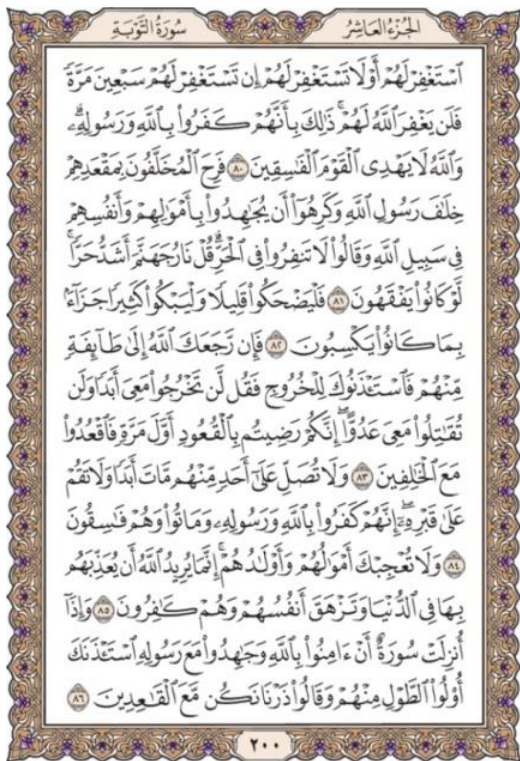 الجُزْءُ العَاشِرُ
سُورَةُ التَّوْبَةِ
ٱسْتَغْفِرْ لَهُمْ أَوْ لَا تَسْتَغْفِرْ لَهُمْ إِن تَسْتَغْفِرْ لَهُمْ سَبْعِينَ مَرَّةً
فَلَن يَغْفِرَ ٱللَّهُ لَهُمْ ۚ ذَٰلِكَ بِأَنَّهُمْ كَفَرُوا۟ بِٱللَّهِ وَرَسُولِهِۦ ۗ
وَٱللَّهُ لَا يَهْدِى ٱلْقَوْمَ ٱلْفَـٰسِقِينَ ٨٠ فَرِحَ ٱلْمُخَلَّفُونَ بِمَقْعَدِهِمْ
خِلَـٰفَ رَسُولِ ٱللَّهِ وَكَرِهُوٓا۟ أَن يُجَـٰهِدُوا۟ بِأَمْوَٰلِهِمْ وَأَنفُسِهِمْ
فِى سَبِيلِ ٱللَّهِ وَقَالُوا۟ لَا تَنفِرُوا۟ فِى ٱلْحَرِّ ۗ قُلْ نَارُ جَهَنَّمَ أَشَدُّ حَرًّا ۚ
لَّوْ كَانُوا۟ يَفْقَهُونَ ٨١ فَلْيَضْحَكُوا۟ قَلِيلًا وَلْيَبْكُوا۟ كَثِيرًا جَزَآءًۢ
بِمَا كَانُوا۟ يَكْسِبُونَ ٨٢ فَإِن رَّجَعَكَ ٱللَّهُ إِلَىٰ طَآئِفَةٍ
مِّنْهُمْ فَٱسْتَـْٔذَنُوكَ لِلْخُرُوجِ فَقُل لَّن تَخْرُجُوا۟ مَعِىَ أَبَدًا وَلَن
تُقَـٰتِلُوا۟ مَعِىَ عَدُوًّا ۖ إِنَّكُمْ رَضِيتُم بِٱلْقُعُودِ أَوَّلَ مَرَّةٍ فَٱقْعُدُوا۟
مَعَ ٱلْخَـٰلِفِينَ ٨٣ وَلَا تُصَلِّ عَلَىٰٓ أَحَدٍ مِّنْهُم مَّاتَ أَبَدًا وَلَا تَقُمْ
عَلَىٰ قَبْرِهِۦٓ ۖ إِنَّهُمْ كَفَرُوا۟ بِٱللَّهِ وَرَسُولِهِۦ وَمَاتُوا۟ وَهُمْ فَـٰسِقُونَ
٨٤ وَلَا تُعْجِبْكَ أَمْوَٰلُهُمْ وَأَوْلَـٰدُهُمْ ۚ إِنَّمَا يُرِيدُ ٱللَّهُ أَن يُعَذِّبَهُم
بِهَا فِى ٱلدُّنْيَا وَتَزْهَقَ أَنفُسُهُمْ وَهُمْ كَـٰفِرُونَ ٨٥ وَإِذَآ
أُنزِلَتْ سُورَةٌ أَنْ ءَامِنُوا۟ بِٱللَّهِ وَجَـٰهِدُوا۟ مَعَ رَسُولِهِ ٱسْتَـْٔذَنَكَ
أُو۟لُوا۟ ٱلطَّوْلِ مِنْهُمْ وَقَالُوا۟ ذَرْنَا نَكُن مَّعَ ٱلْقَـٰعِدِينَ ٨٦
٢٠٠